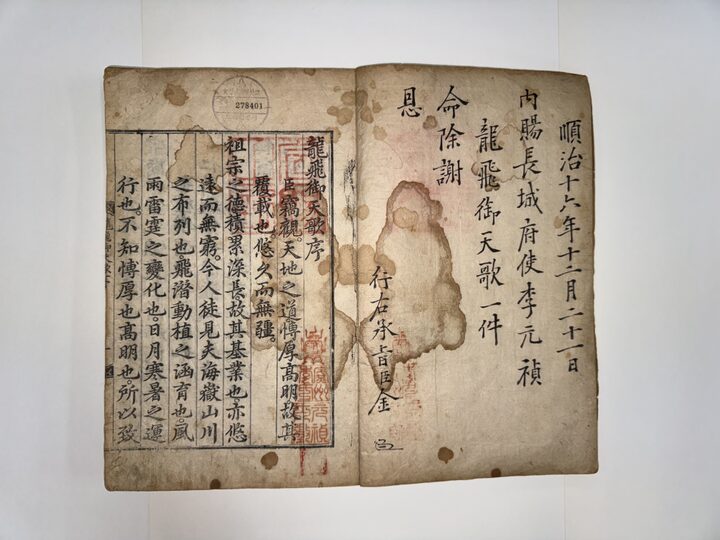 順治十六年十二月二十一日
內賜長城府使李元禎
龍飛御天歌一件
命除謝
恩
行右承旨臣金
278401
龍飛御天歌序
臣竊觀。天地之道。博厚高明。故其
覆載也。悠久而無疆。
祖宗之德。積累深長。故其基業也。亦悠
遠而無窮。今人徒見夫海嶽山川
之布列也。飛潛動植之涵育也。風
雨雷霆之變化也。日月寒暑之運
行也。不知博厚也高明也。所以致